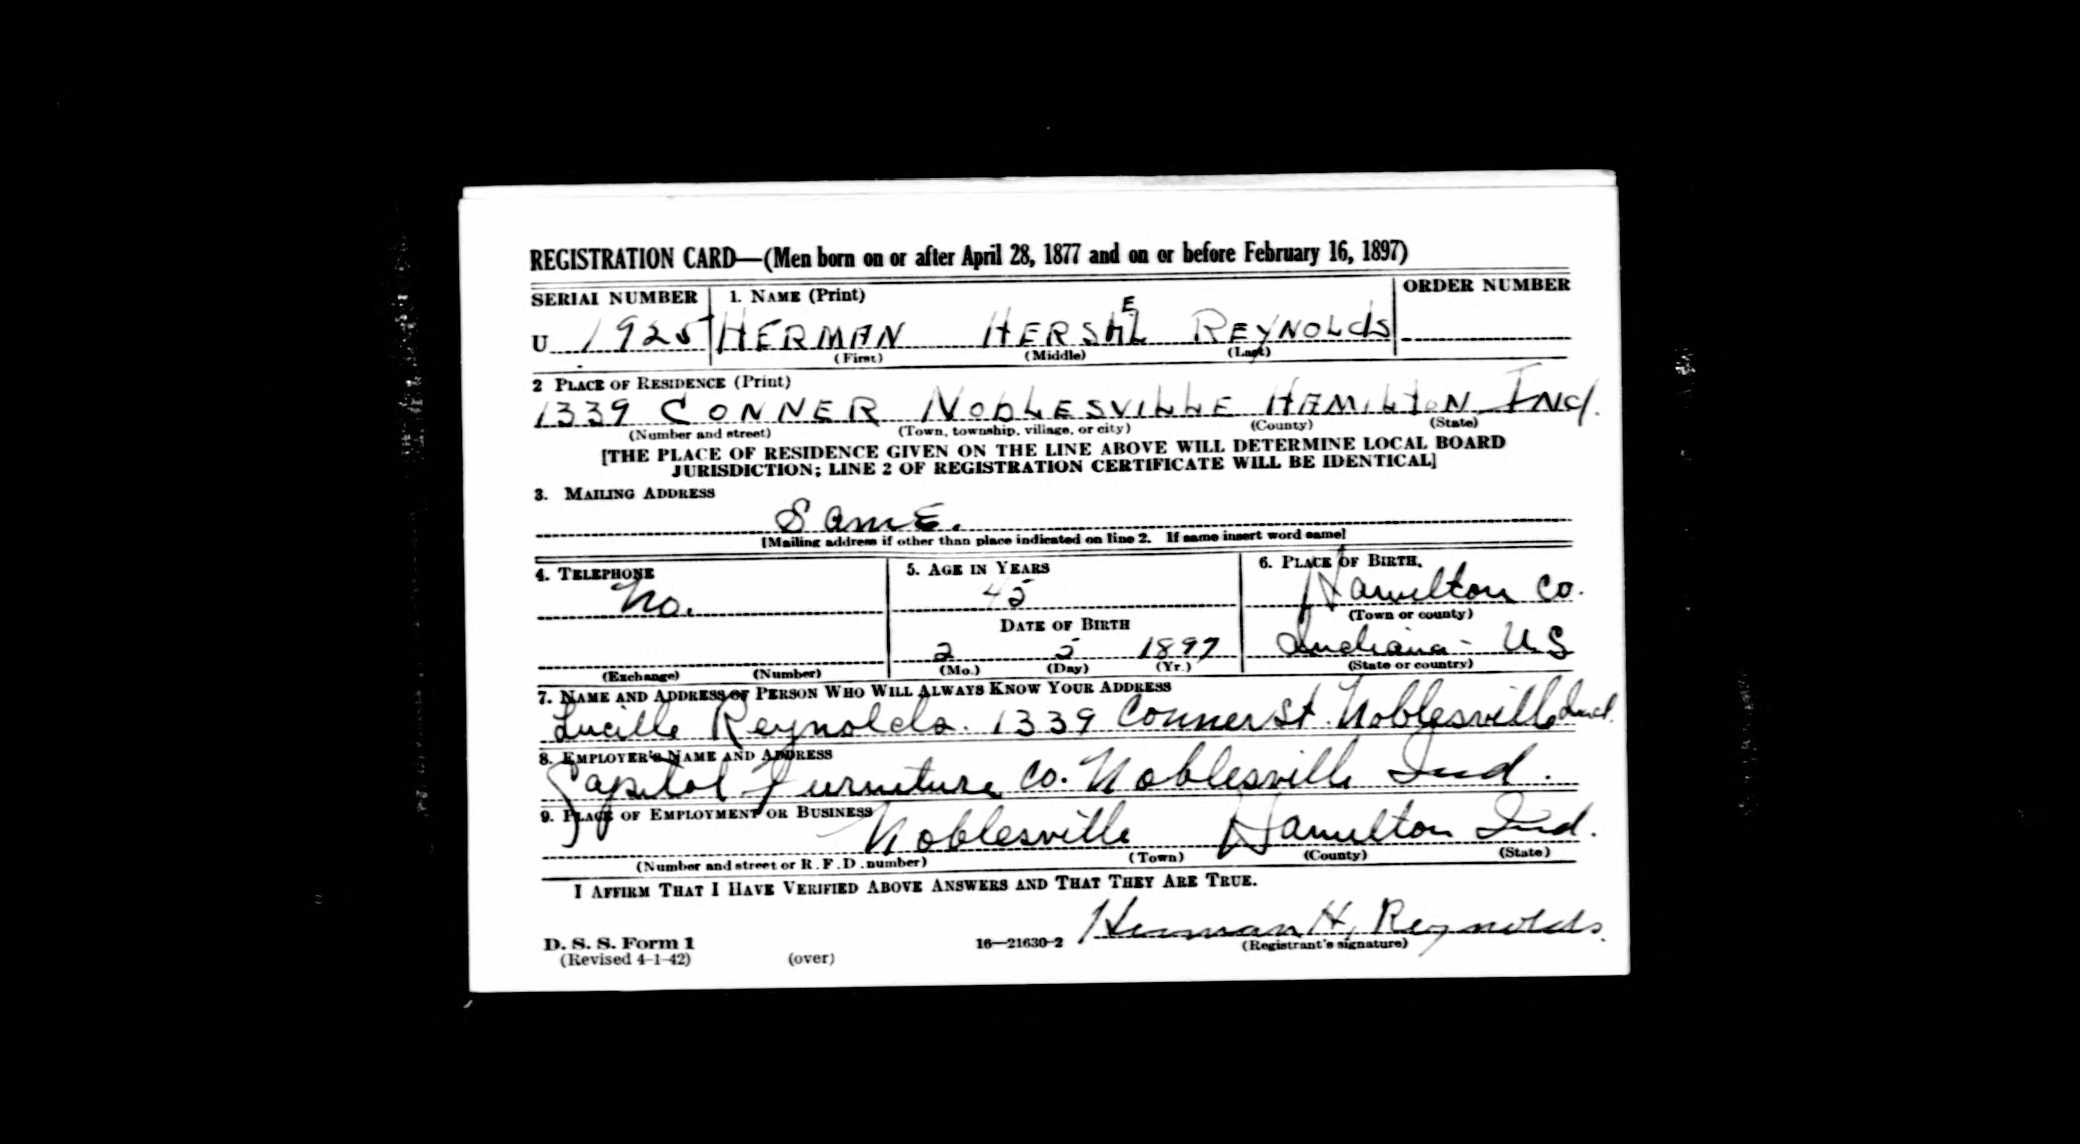 REGISTRATION CARD—(Men born on or after April 28, 1877 and on or before February 16, 1897)
SERIAL NUMBER 1. NAME (Print) ORDER NUMBER
E
U 1925 HERMAN HERSHL REYNOLdS
(First) (Middle) (Last)
2 PLACE OF RESIDENCE (Print)
1339 CONNER NOBLESVILLE HAMILTON INd.
(Number and street) (Town, township, village, or city) (County) (State)
[THE PLACE OF RESIDENCE GIVEN ON THE LINE ABOVE WILL DETERMINE LOCAL BOARD
JURISDICTION; LINE 2 OF REGISTRATION CERTIFICATE WILL BE IDENTICAL]
3. MAILING ADDRESS
SamE.
[Mailing address if other than place indicated on line 2. If same insert word same]
4. TELEPHONE 5. AGE IN YEARS 6. PLACE OF BIRTH.
No. 45 Hamilton Co.
(Town or county)
DATE OF BIRTH
2 5 1897 Indiana - US
(Exchange) (Number) (Mo.) (Day) (Yr.) (State or country)
7. NAME AND ADDRESS OF PERSON WHO WILL ALWAYS KNOW YOUR ADDRESS
Lucille Reynolds. 1339 Conner St. Noblesville Ind.
8. EMPLOYER'S NAME AND ADDRESS
Capitol Furniture Co. Noblesville Ind.
9. PLACE OF EMPLOYMENT OR BUSINESS
Noblesville Hamilton Ind.
(Number and street or R. F. D. number) (Town) (County) (State)
I AFFIRM THAT I HAVE VERIFIED ABOVE ANSWERS AND THAT THEY ARE TRUE.
Herman H. Reynolds.
D. S. S. Form 1 16—21630-2 (Registrant's signature)
(Revised 4-1-42) (over)